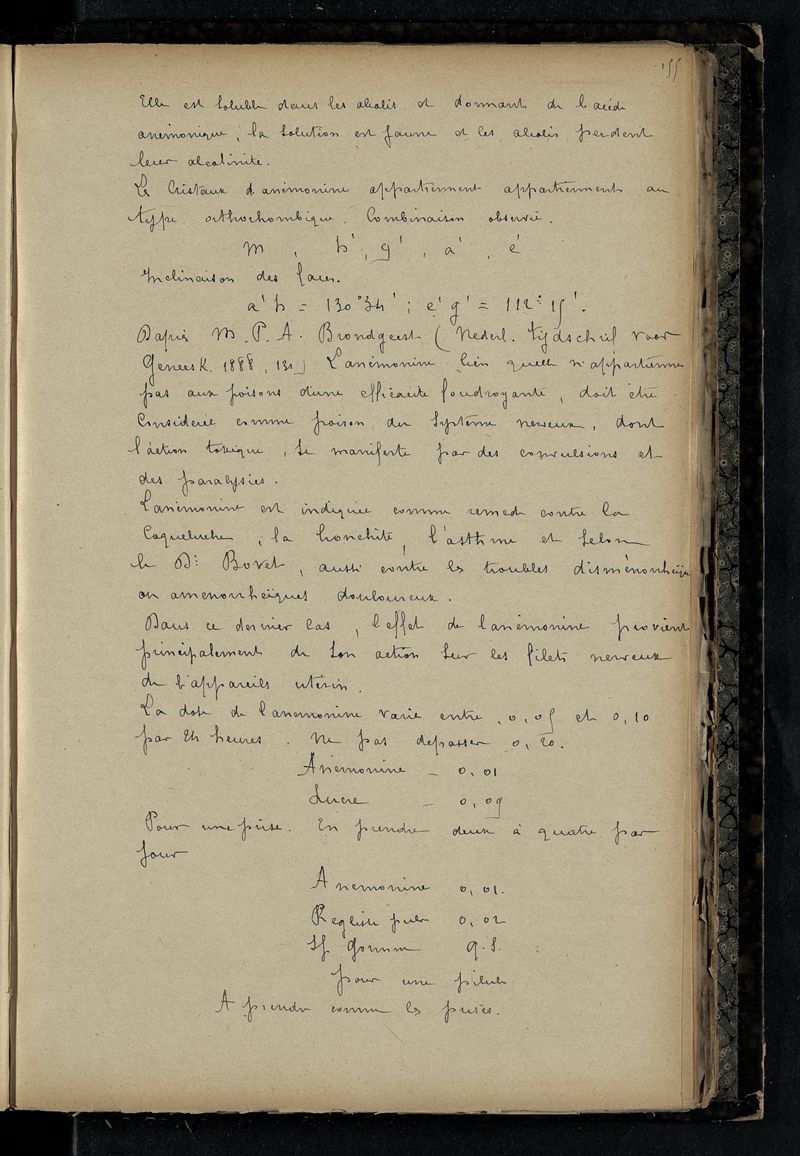 155
Elle est soluble dans les alcalis et donnant de l'acide
anémonique, la solution est jaune et les alcalis perdent
leur alcalinité.
Les Cristaux d'anémonine appartiennent appartiennent au
type orthorhombique. Combinaison observée.
m, h', g', a', e'
Inclinaison des faces.
a'h = 130°34' ; e'g' = 112°15'.
Daprès M. P. A. Brondgeest (Nederl. Tijdschrif voor
Geneesk. 1888, 131) L'anémonine bien quelle n'appartienne
pas aux poisons d'une efficacité foudroyante, doit être
Considérée comme poison du système nerveux, dont
l'action toxique, se manifeste par des convulsions et
des paralysies.
L'anémonine est indiquée comme remède contre la
Coqueluche, la bronchite, l'asthme et selon
le Dr Bovet, aussi contre les troubles disménorrhéique
ou amenorrhéiques douloureux.
Dans ce dernier cas, l'effet de l'anémonine provient
principalement de son action sur les filets nerveux
de l'appareils utérin.
La dose de l'anemonine varie entre, 0,05 et 0,10
par 24 heures. Ne pas depasser 0,20.
Anemonine – 0,01
Sucre – 0,09
Pour une prise. En prendre deux à quatre par
jour
Anemonine 0,01.
Reglisse pulv 0,02
Sp Gomme q.S.
pour une pilule
A prendre comme les prises.